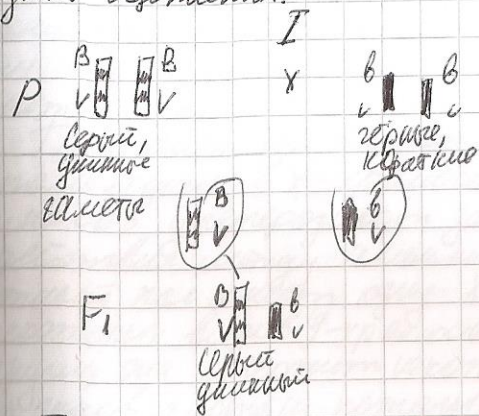 I
P B V B V X b v b v
Серый, длинные
чёрные, короткие
гаметы B V b v
F₁ B V b v
Серый длинный